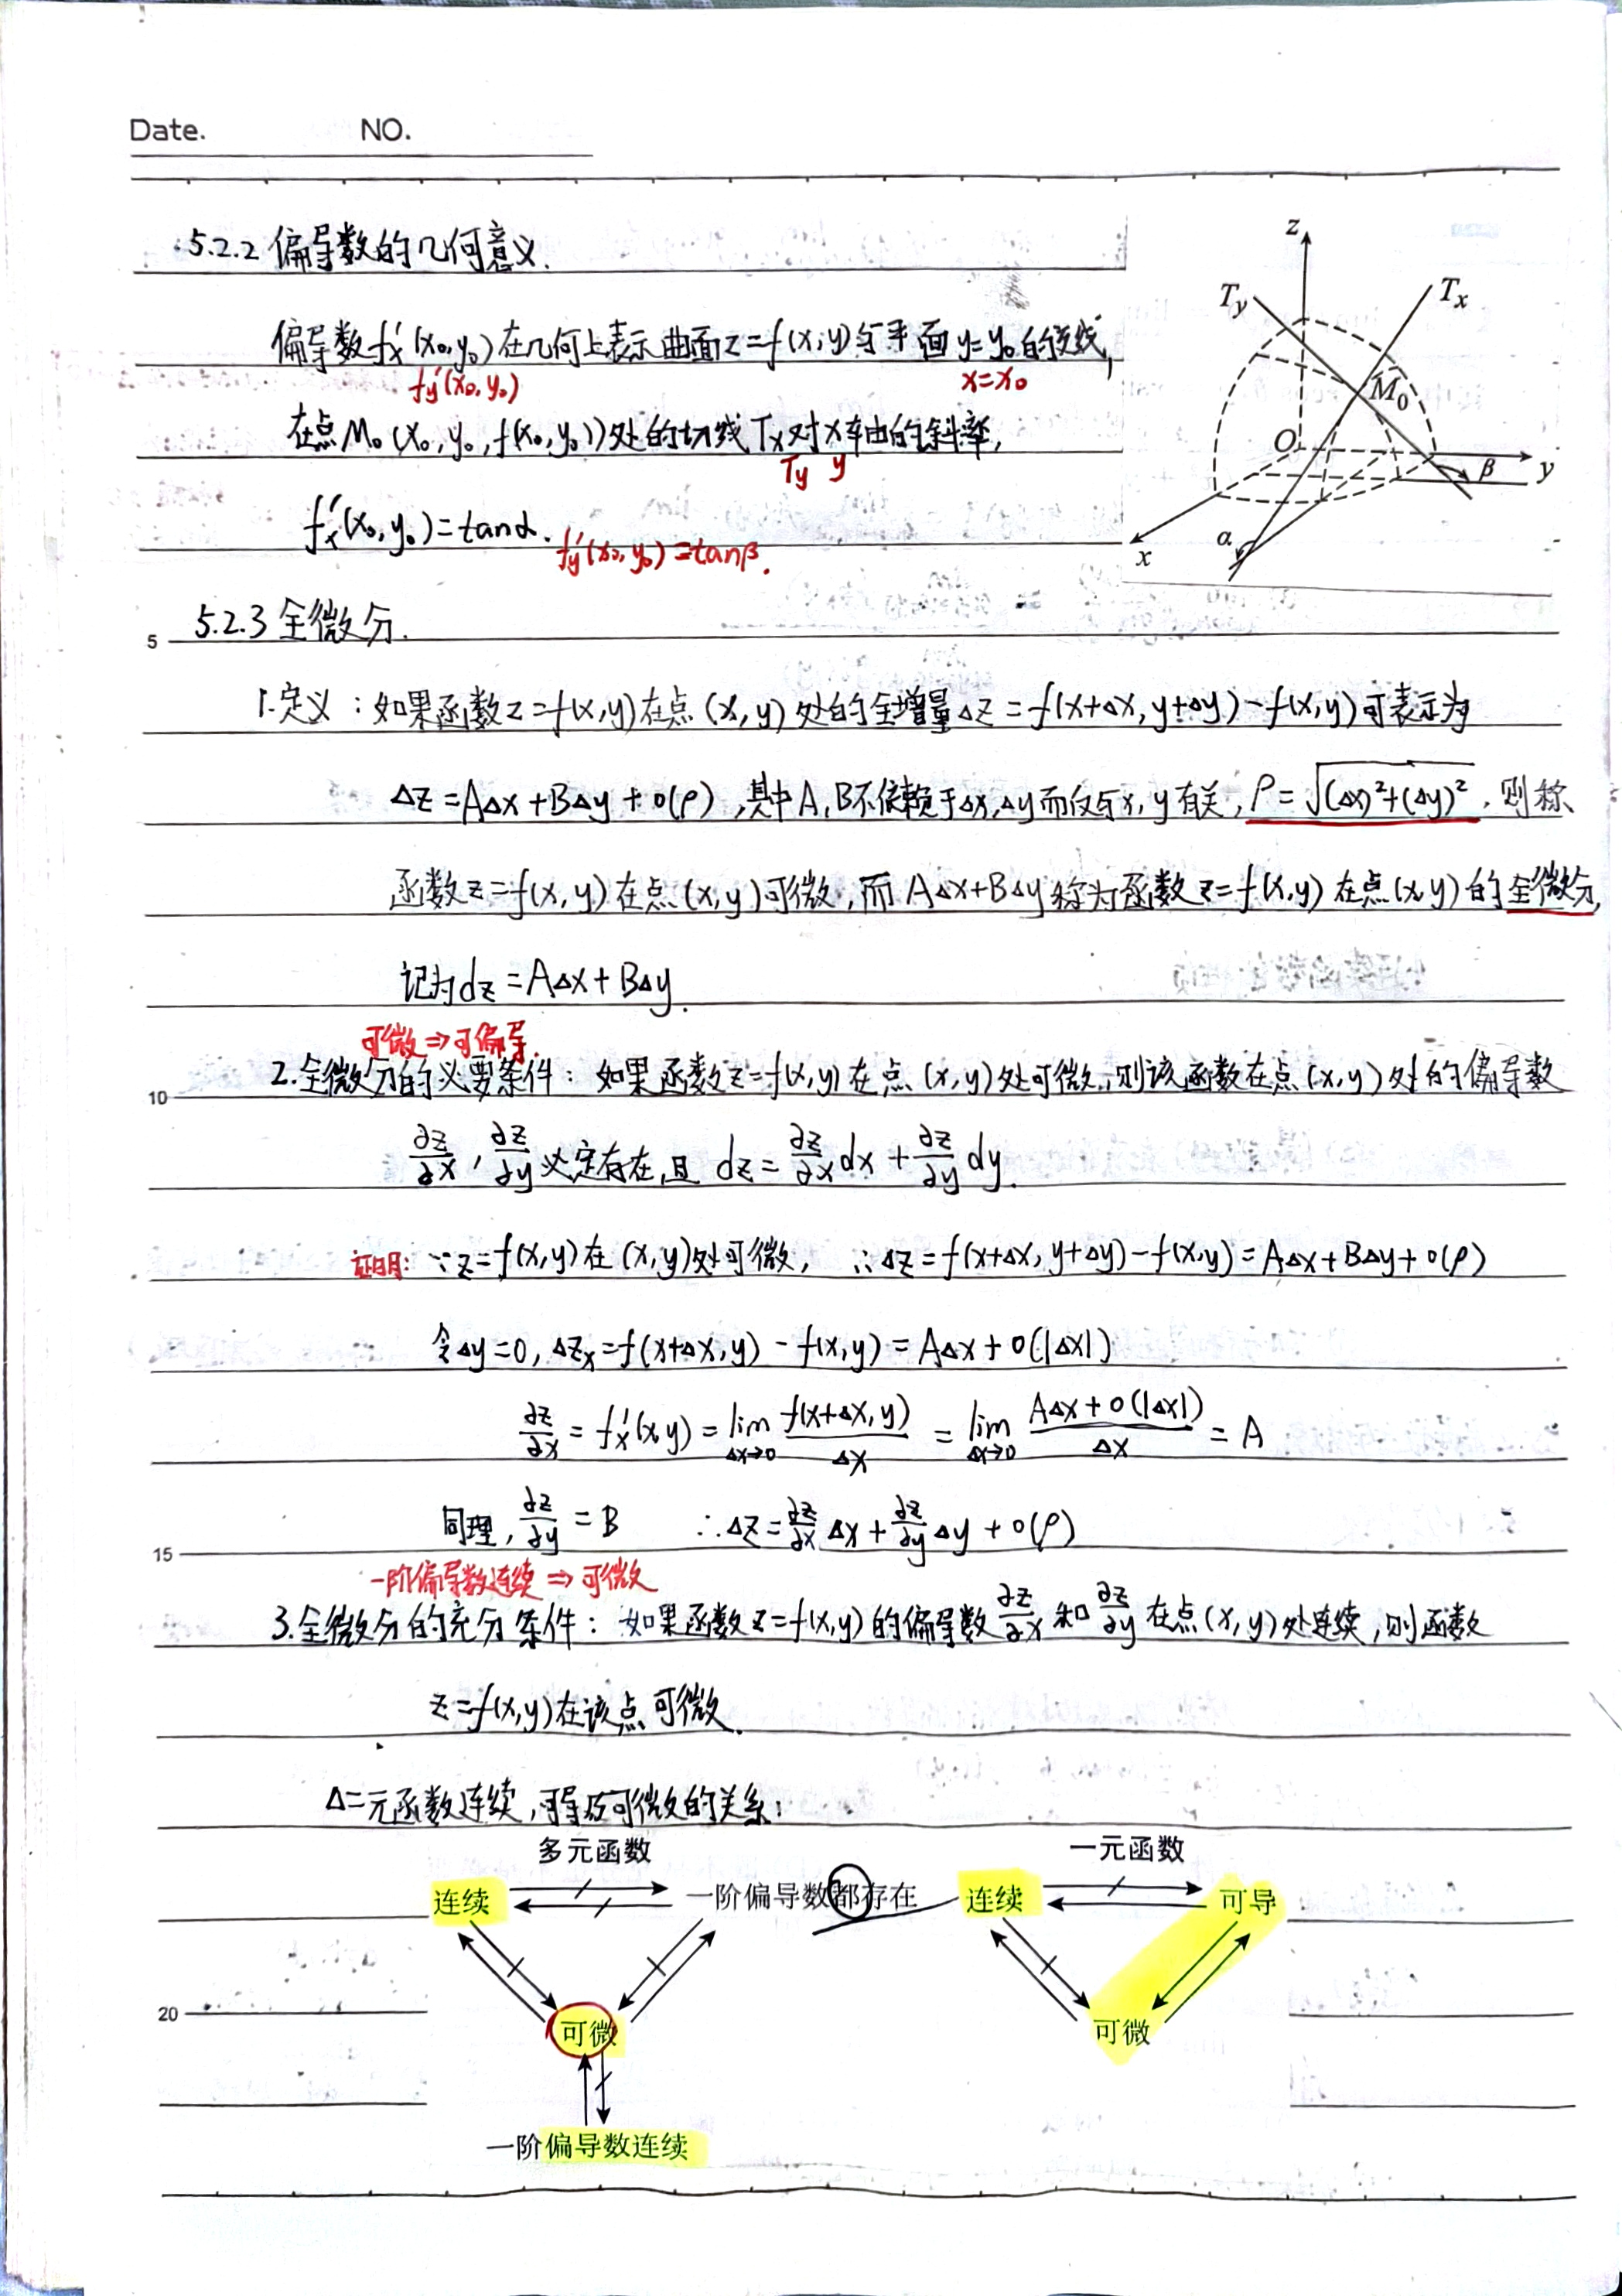 Date. NO.
5.2.2 偏导数的几何意义.
偏导数f'x(x₀,y₀)在几何上表示曲面z=f(x,y)与平面y=y₀的交线,
f'y(x₀,y₀) x=x₀
在点M₀(x₀,y₀,f(x₀,y₀))处的切线Tx对x轴的斜率,
Ty y
f'x(x₀,y₀)=tanα. f'y(x₀,y₀)=tanβ.
z
Ty Tx
M₀
O y
β
α
x
5 5.2.3 全微分.
1.定义:如果函数z=f(x,y)在点(x,y)处的全增量Δz=f(x+Δx,y+Δy)-f(x,y)可表示为
Δz=AΔx+BΔy+o(ρ),其中A,B不依赖于Δx,Δy而仅与x,y有关,ρ=√((Δx)²+(Δy)²),则称
函数z=f(x,y)在点(x,y)可微,而AΔx+BΔy称为函数z=f(x,y)在点(x,y)的全微分,
记为dz=AΔx+BΔy.
可微⇒可偏导.
10 2.全微分的必要条件:如果函数z=f(x,y)在点(x,y)处可微,则该函数在点(x,y)处的偏导数
∂z/∂x,∂z/∂y必定存在,且dz=∂z/∂x dx+∂z/∂y dy.
证明:∵z=f(x,y)在(x,y)处可微,∴Δz=f(x+Δx,y+Δy)-f(x,y)=AΔx+BΔy+o(ρ)
令Δy=0,Δzx=f(x+Δx,y)-f(x,y)=AΔx+o(|Δx|)
∂z/∂x=f'x(x,y)=lim Δx→0 f(x+Δx,y)/Δx=lim Δx→0 (AΔx+o(|Δx|))/Δx=A
15 同理,∂z/∂y=B ∴Δz=∂z/∂x Δx+∂z/∂y Δy+o(ρ)
一阶偏导数连续⇒可微
3.全微分的充分条件:如果函数z=f(x,y)的偏导数∂z/∂x和∂z/∂y在点(x,y)处连续,则函数
z=f(x,y)在该点可微.
Δ二元函数连续,可导及可微的关系:
多元函数 一元函数
连续 一阶偏导数都存在 连续 可导
20 可微 可微
一阶偏导数连续